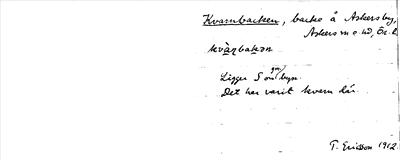 Kvarnbacken, backe å Askersby,
Askers sn o. hd, Ör. l.
kvà̱ṇbakən
Ligger S om byn.
Det har varit kvarn där.
T. Ericsson 1912